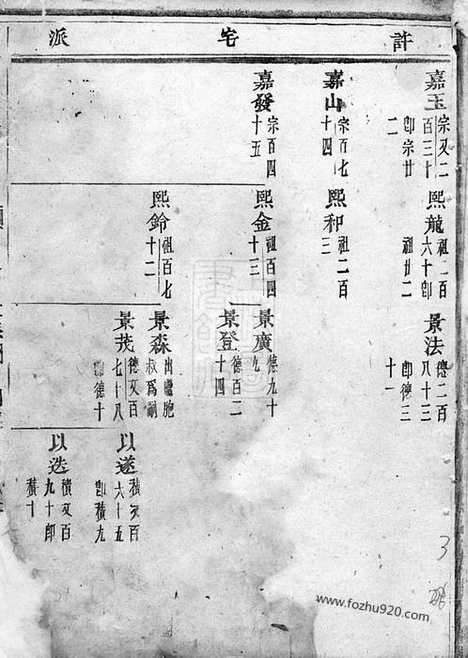 許宅派
嘉玉 宗又二百三十 卽宗廿二
嘉山 宗百七十四
嘉發 宗百四十五
熙龍 祖二百六十卽祖廿二
熙和 祖二百三
熙金 祖百四十三
熙鈴 祖百七十二
景法 德二百八十三卽德三十一
景廣 德九十九
景登 德百二十四
景森 出繼胞叔爲嗣
景茂 德又百七十八卽德十
以遂 積又百六十五卽積九
以迭 積又百九十卽積十
3
www.fozhu920.com